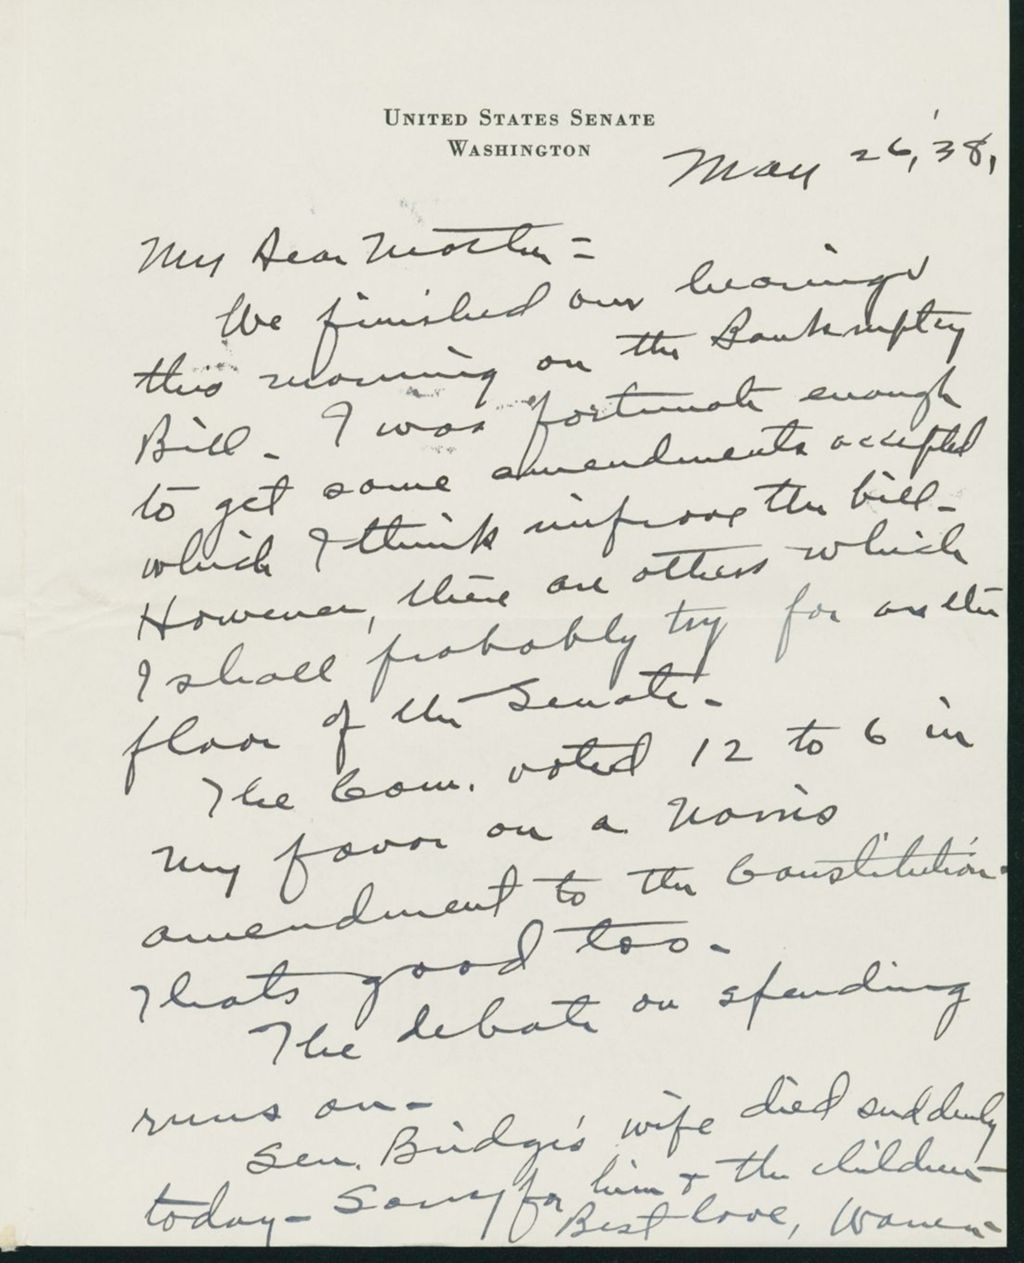 UNITED STATES SENATE
WASHINGTON
May 26, '38,
My Dear Mother =
We finished our hearings
this morning on the Bankruptcy
Bill - I was fortunate enough
to get some amendments accepted
which I think improve the bill -
However, there are others which
I shall probably try for on the
floor of the Senate -
The Com. voted 12 to 6 in
my favor on a Norris
amendment to the Constitution -
Thats good too -
The debate on spending
runs on -
Sen. Bridges's wife died suddenly
today - Sorry for him & the children -
Best love, Warren -